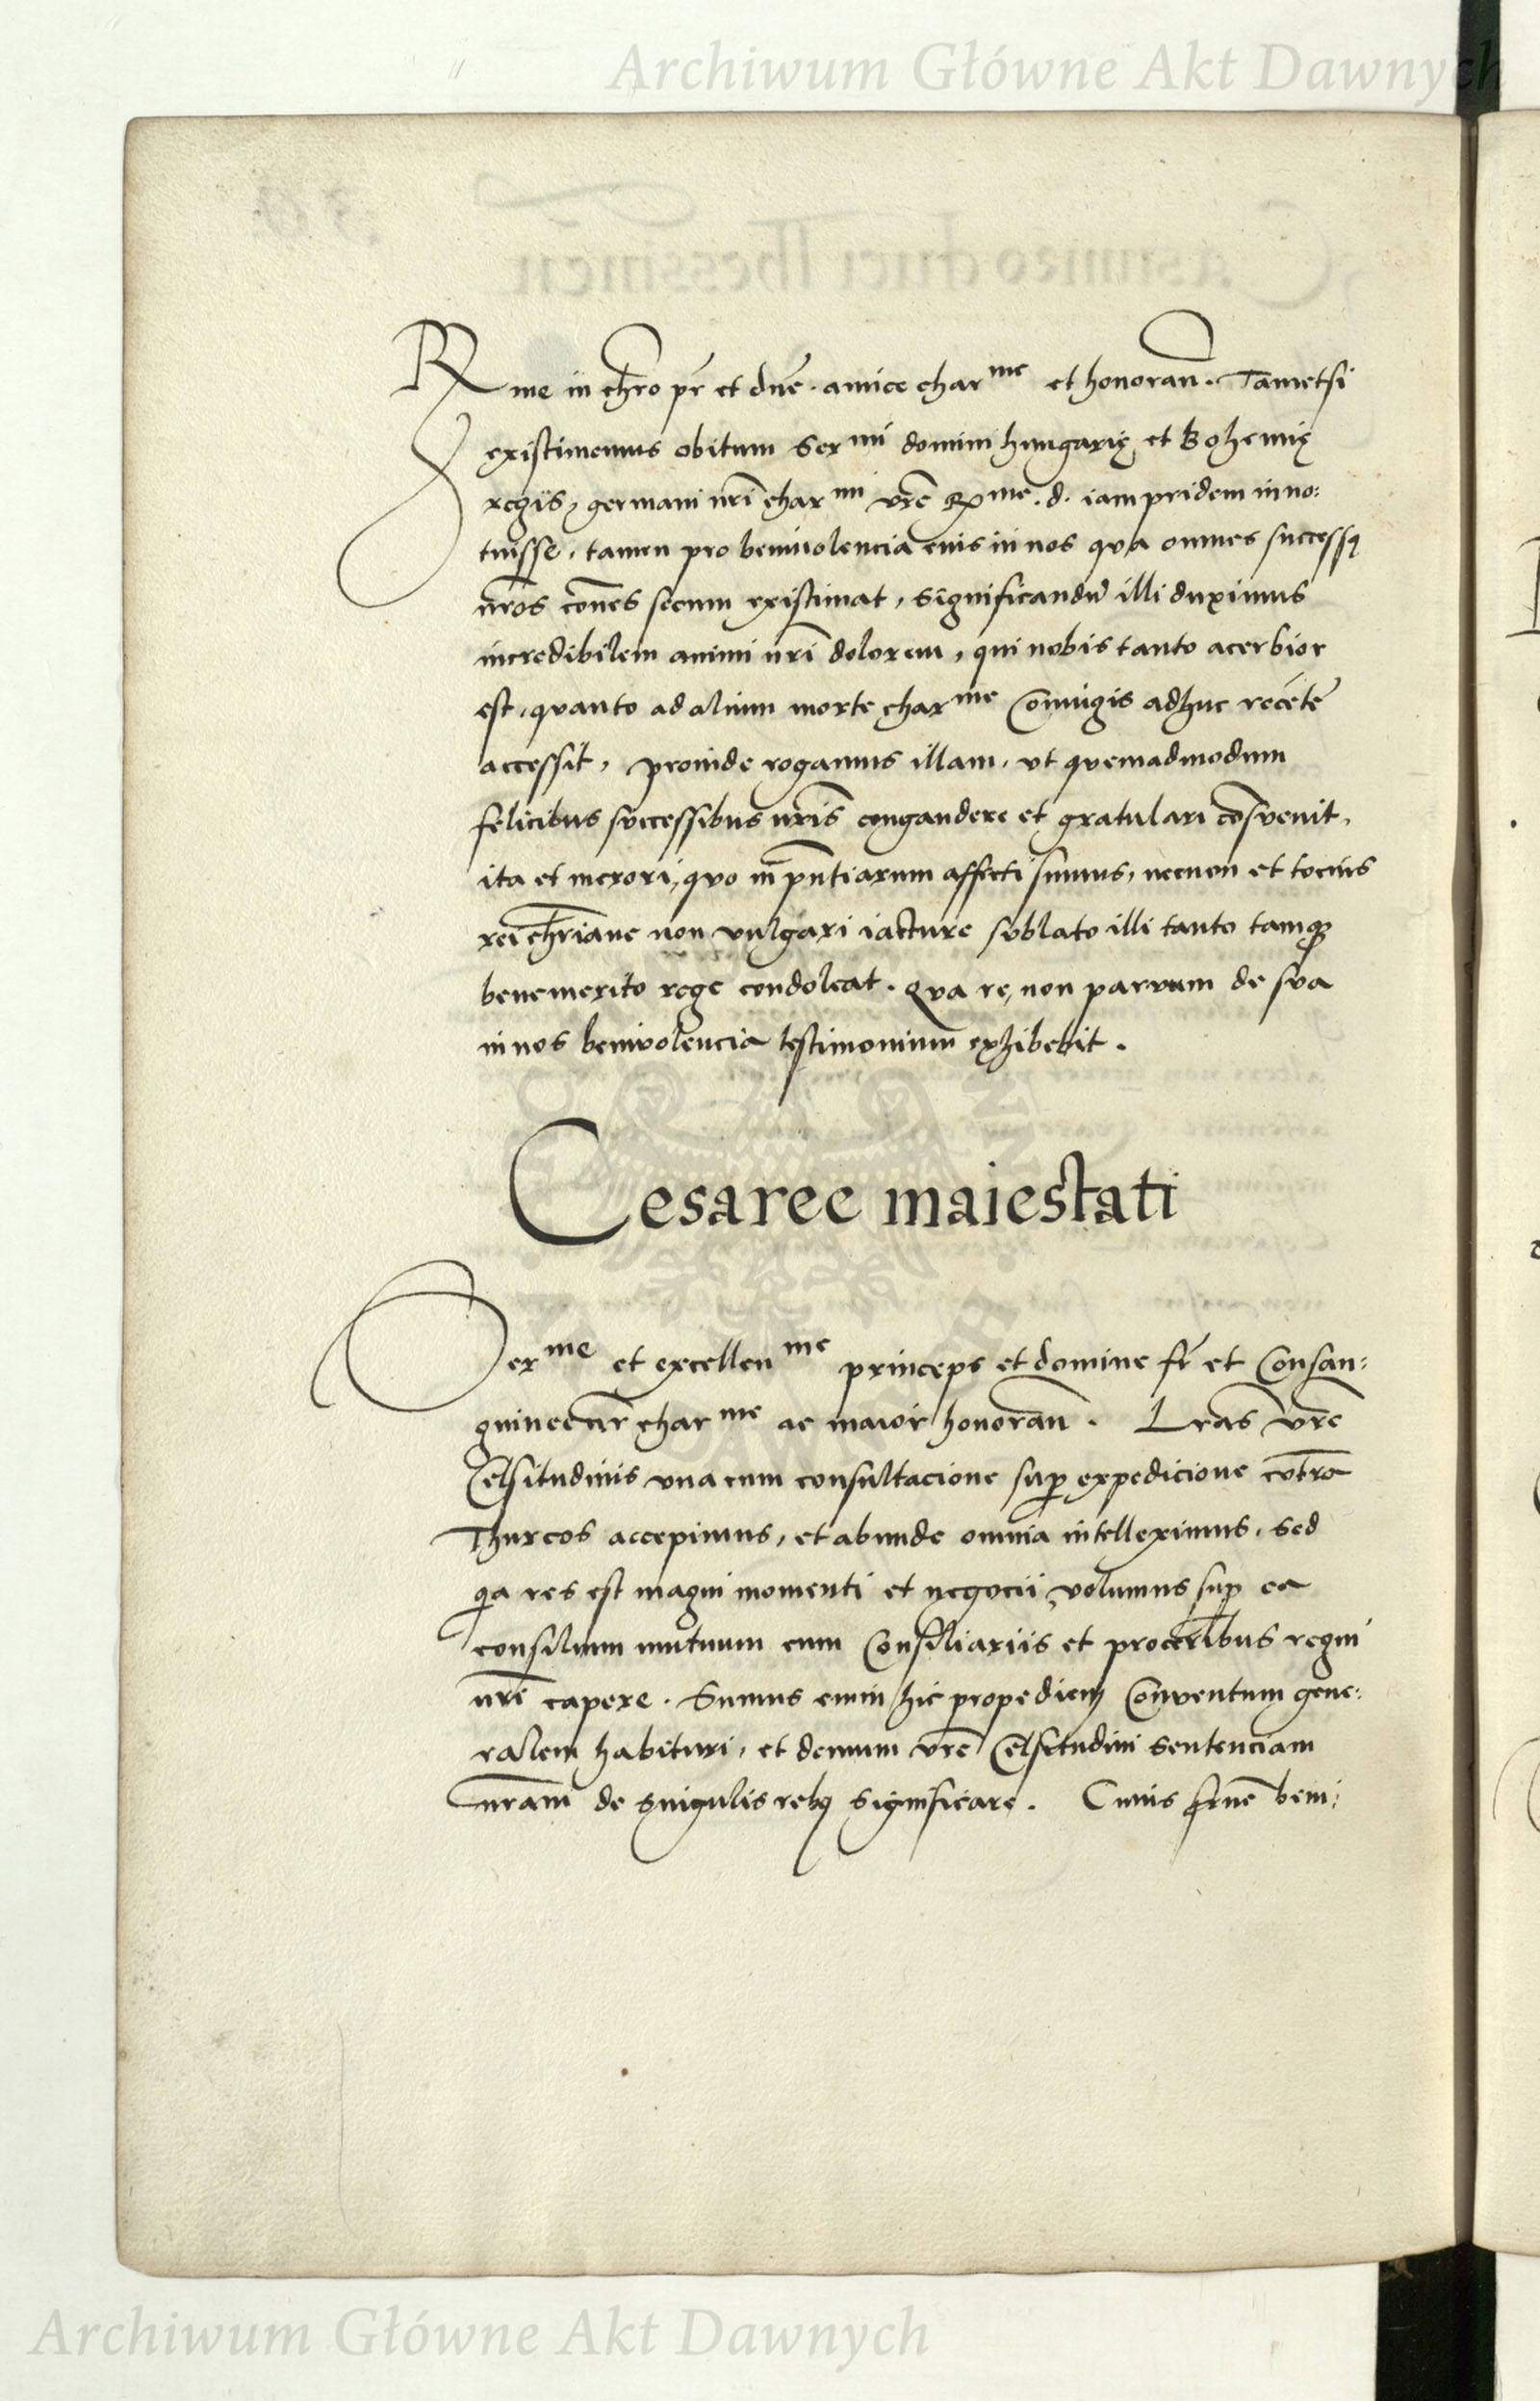 Archiwum Główne Akt Dawnych
Rme in chro pr̄ et dnē. amice charme et honoran̄. Tametsi
existimemus obitum Sermi domini hungarię et Bohemię
regis, germani nr̄i charmi vr̄e Rme. d. iampridem inno:
tuisse, tamen pro benivolencia eius in nos qua omnes successꝰ
nr̄os cōnes secum existimat, significandū illi duximus
incredibilem animi nr̄i dolorem, qui nobis tanto acerbior
est, quanto ad alium morte charme Coniugis adhuc recētē
accessit, proinde rogamus illam, vt quemadmodum
felicibus successibus nr̄is congaudere et gratulari consvevit,
ita et merori, quo in pn̄tiarum affecti sumus, necnon et tocius
rei chr̄iane non vulgari iacture sublato illi tanto tamqꝫ
benemerito rege condoleat. Qua re, non parvum de sua
in nos benivolencia testimonium exhibebit.
Cesaree maiestati
Serme et excellenme princeps et domine fr̄ et Consan:
guinee nr̄ charme ac maior honoran̄. Lr̄as vr̄e
Celsitudinis vna cum consultacione suꝑ expedicione cōtra
Thurcos accepimus, et abunde omnia intelleximus, sed
qa res est magni momenti et negocii, volumus suꝑ ea
consilium mutuum cum Consiliariis et proceribus regni
nr̄i capere. Sumus enim hic propediem Conventum gene:
ralem habituri, et demum vr̄e Celsitudini sentenciam
nr̄am de singulis rebꝰ significare. Cuius frnē beni:
Archiwum Główne Akt Dawnych